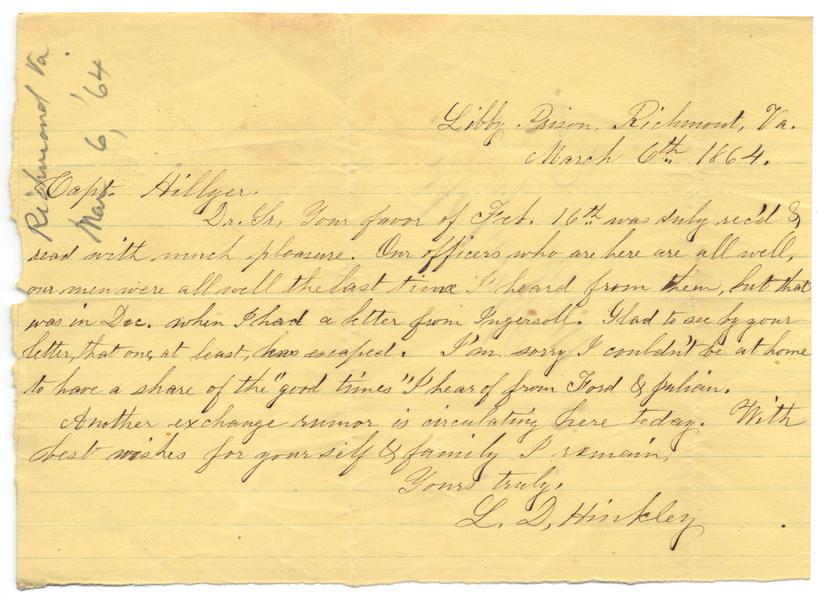 Richmond Va.
Mar 6, '64
Libby Prison, Richmont, Va.
March 6th. 1864.
Capt. Hillyer.
Dr. Sr, Your favor of Feb. 16th was duly rec'd &
read with much pleasure. Our officers who are here are all well,
our men were all well the last time I heard from them, but that
was in Dec. when I had a letter from Ingersoll. Glad to see by your
letter, that one, at least, has escaped. I'm sorry I couldn't be at home
to have a share of the "good times" I hear of from Ford & Julian.
Another exchange rumor is circulating here today. With
best wishes for yourself & family I remain,
Yours truly,
L. D. Hinkley